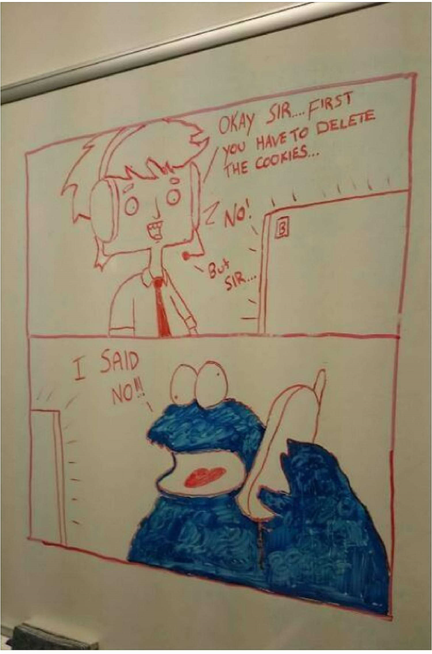 OKAY SIR....FIRST
YOU HAVE TO DELETE
THE COOKIES...
NO!
BUT
SIR...
B
I SAID
NO!!